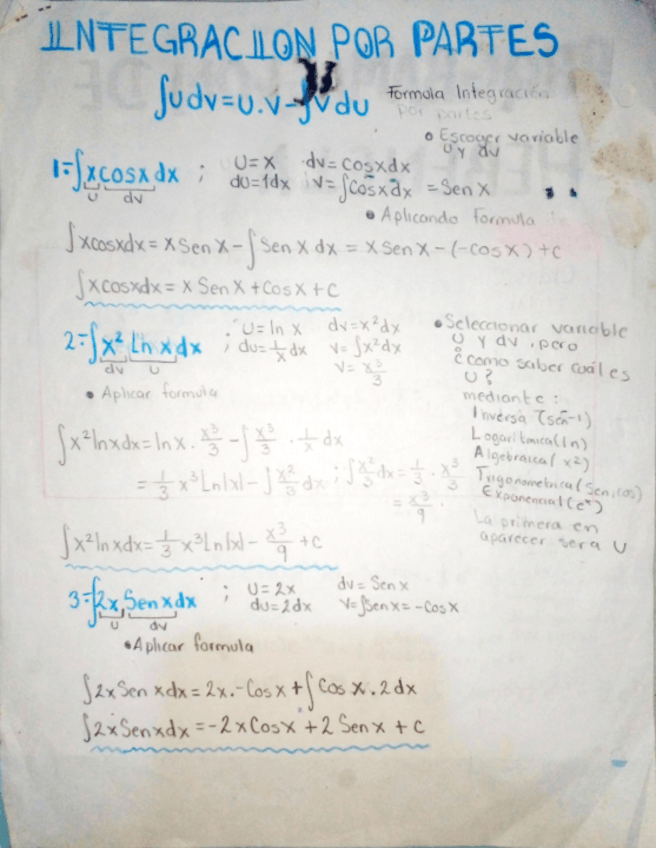 INTEGRACION POR PARTES
∫udv=u.v-∫vdu Formula Integración
por partes
• Escoger variable
U y dv
1=∫xcosx dx ; U=x dv=cosxdx
u dv du=1dx v=∫cosxdx = Sen x
• Aplicando formula
∫xcosxdx = x Sen x - ∫Sen x dx = x Sen x - (-cosx) + c
∫xcosxdx = x Sen x + Cos x + c
2=∫x² Ln x dx ; U=ln x dv=x²dx
dv u du=1/x dx v=∫x²dx
v=x³/3
• Seleccionar variable
U y dv, pero
¿como saber cuál es
U?
mediante:
Inversa (sen-1)
Logaritmica(ln)
Algebraica(x²)
Trigonometrica(Sen,cos)
Exponencial(eˣ)
La primera en
aparecer sera U
• Aplicar formula
∫x²lnxdx=lnx. x³/3 - ∫x³/3 . 1/x dx
= 1/3 x³Ln|x| - ∫x²/3 dx ; ∫x²/3 dx = 1/3 . x³/3
= x³/9 .
∫x²lnxdx=1/3 x³Ln|x| - x³/9 +c
3=∫2x Sen x dx ; U=2x dv=Sen x
u dv du=2dx v=∫Senx=-Cosx
• Aplicar formula
∫2xSen xdx = 2x.-Cosx + ∫Cos x.2dx
∫2xSenxdx = -2xCosx + 2 Senx + c